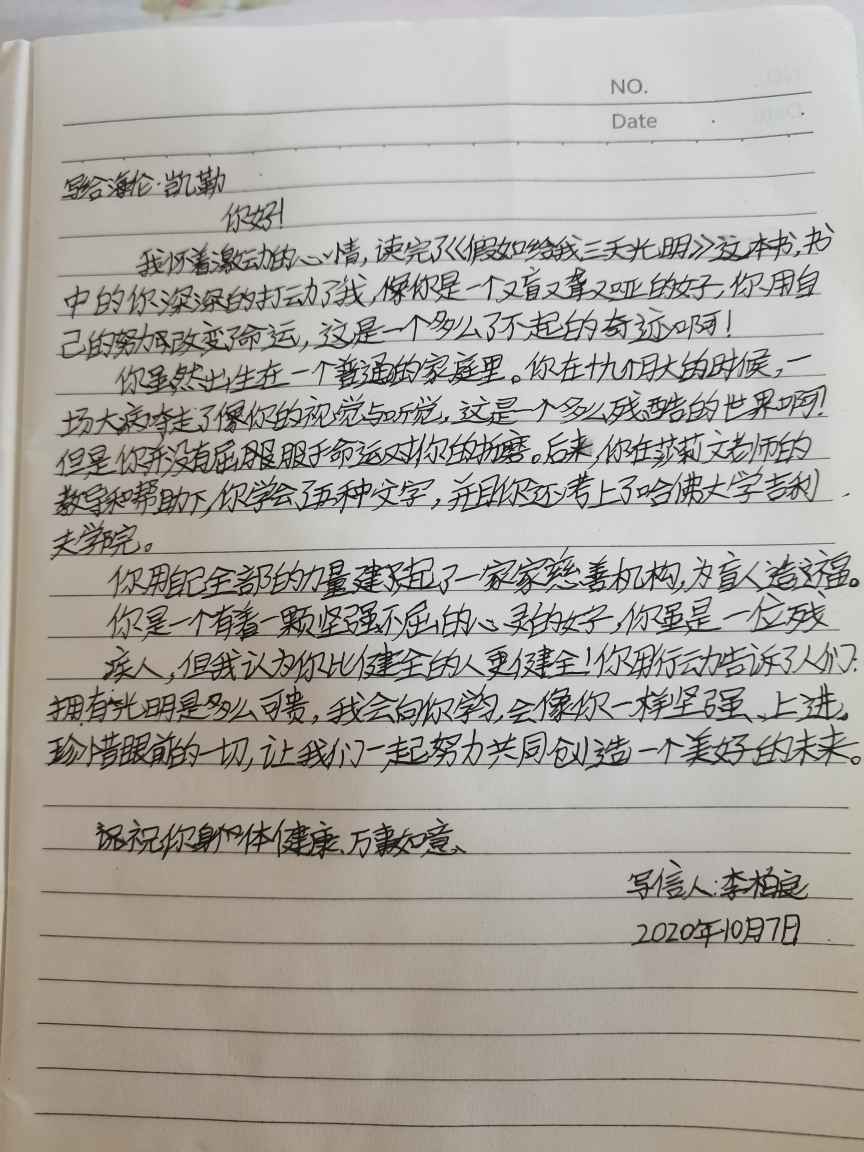 NO.
Date
写给海伦·凯勒
你好!
我怀着激动的心情,读完了《假如给我三天光明》这本书,书
中的你深深的打动了我,像你是一个又盲又聋又哑的女子,你用自
己的努力改变了命运,这是一个多么了不起的奇迹啊!
你虽然出生在一个普通的家庭里。你在十九个月大的时候,一
场大病夺走了像你的视觉与听觉,这是一个多么残酷的世界啊!
但是你并没有屈服服于命运对你的折磨。后来,你在莎莉文老师的
教导和帮助下,你学会了五种文字,并且你还考上了哈佛大学吉利
夫学院。
你用自己全部的力量建起了一家家慈善机构,为盲人造福。
你是一个有着一颗坚强不屈的心灵的女子,你虽是一位残
疾人,但我认为你比健全的人更健全!你用行动告诉了人们:
拥有光明是多么可贵,我会向你学习,会像你一样坚强、上进。
珍惜眼前的一切,让我们一起努力共同创造一个美好的未来。
祝你身体健康、万事如意、
写信人:李柏良
2020年10月7日